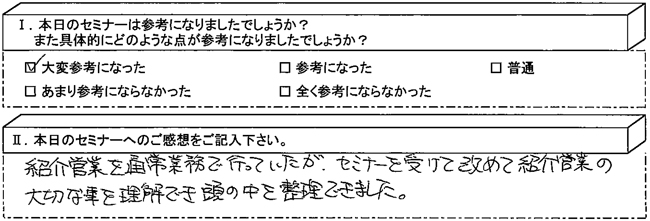 Ⅰ．本日のセミナーは参考になりましたでしょうか？
また具体的にどのような点が参考になりましたでしょうか？
☑ 大変参考になった □ 参考になった □ 普通
□ あまり参考にならなかった □ 全く参考にならなかった
Ⅱ．本日のセミナーへのご感想をご記入下さい。
紹介営業を通常業務で行っていたが、セミナーを受けて改めて紹介営業の
大切な事を理解でき頭の中を整理できました。